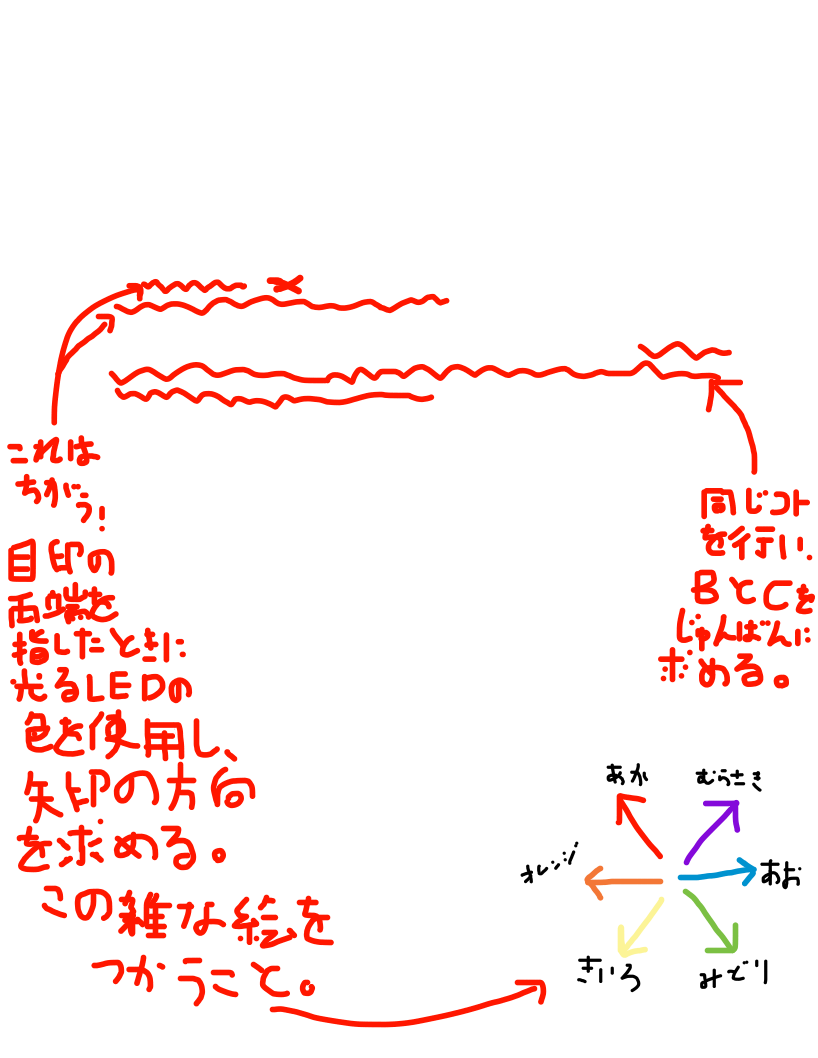 これは
ちがう!
目印の
両端を
指したときに
光るLEDの
色を使用し、
矢印の方向
を求める。
この雑な絵を
つかうこと。
同じコト
を行い、
BとCを
じゅんばんに
求める。
あか
むらさき
オレンジ
あお
きいろ
みどり